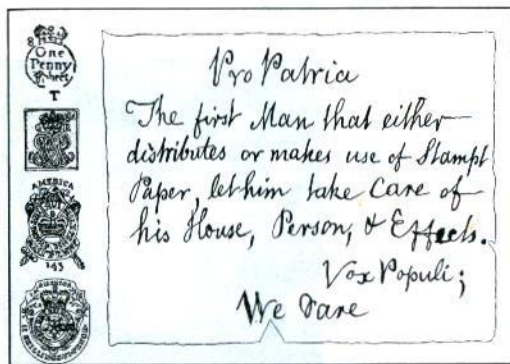 One
Penny
T
AMERICA
Pro Patria
The first Man that either
distributes or makes use of Stampt
Paper, let him take Care of
his House, Person, & Effects.
Vox Populi;
We dare